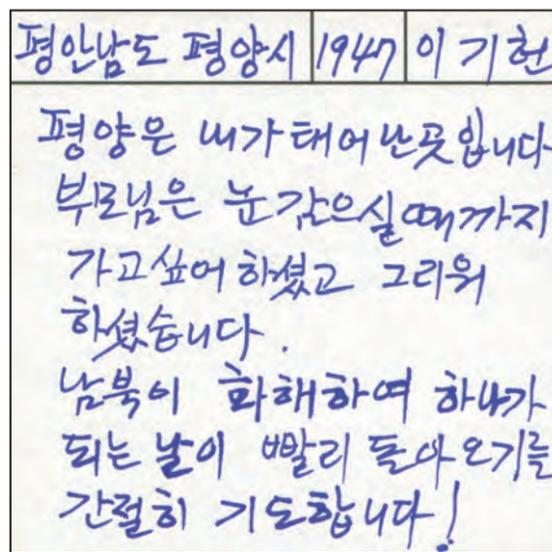 평안남도 평양시 1947 이기헌
평양은 내가 태어난곳입니다
부모님은 눈 감으실때까지
가고싶어 하셨고 그리워
하셨습니다.
남북이 화해하여 하나가
되는 날이 빨리 돌아오기를
간절히 기도합니다!